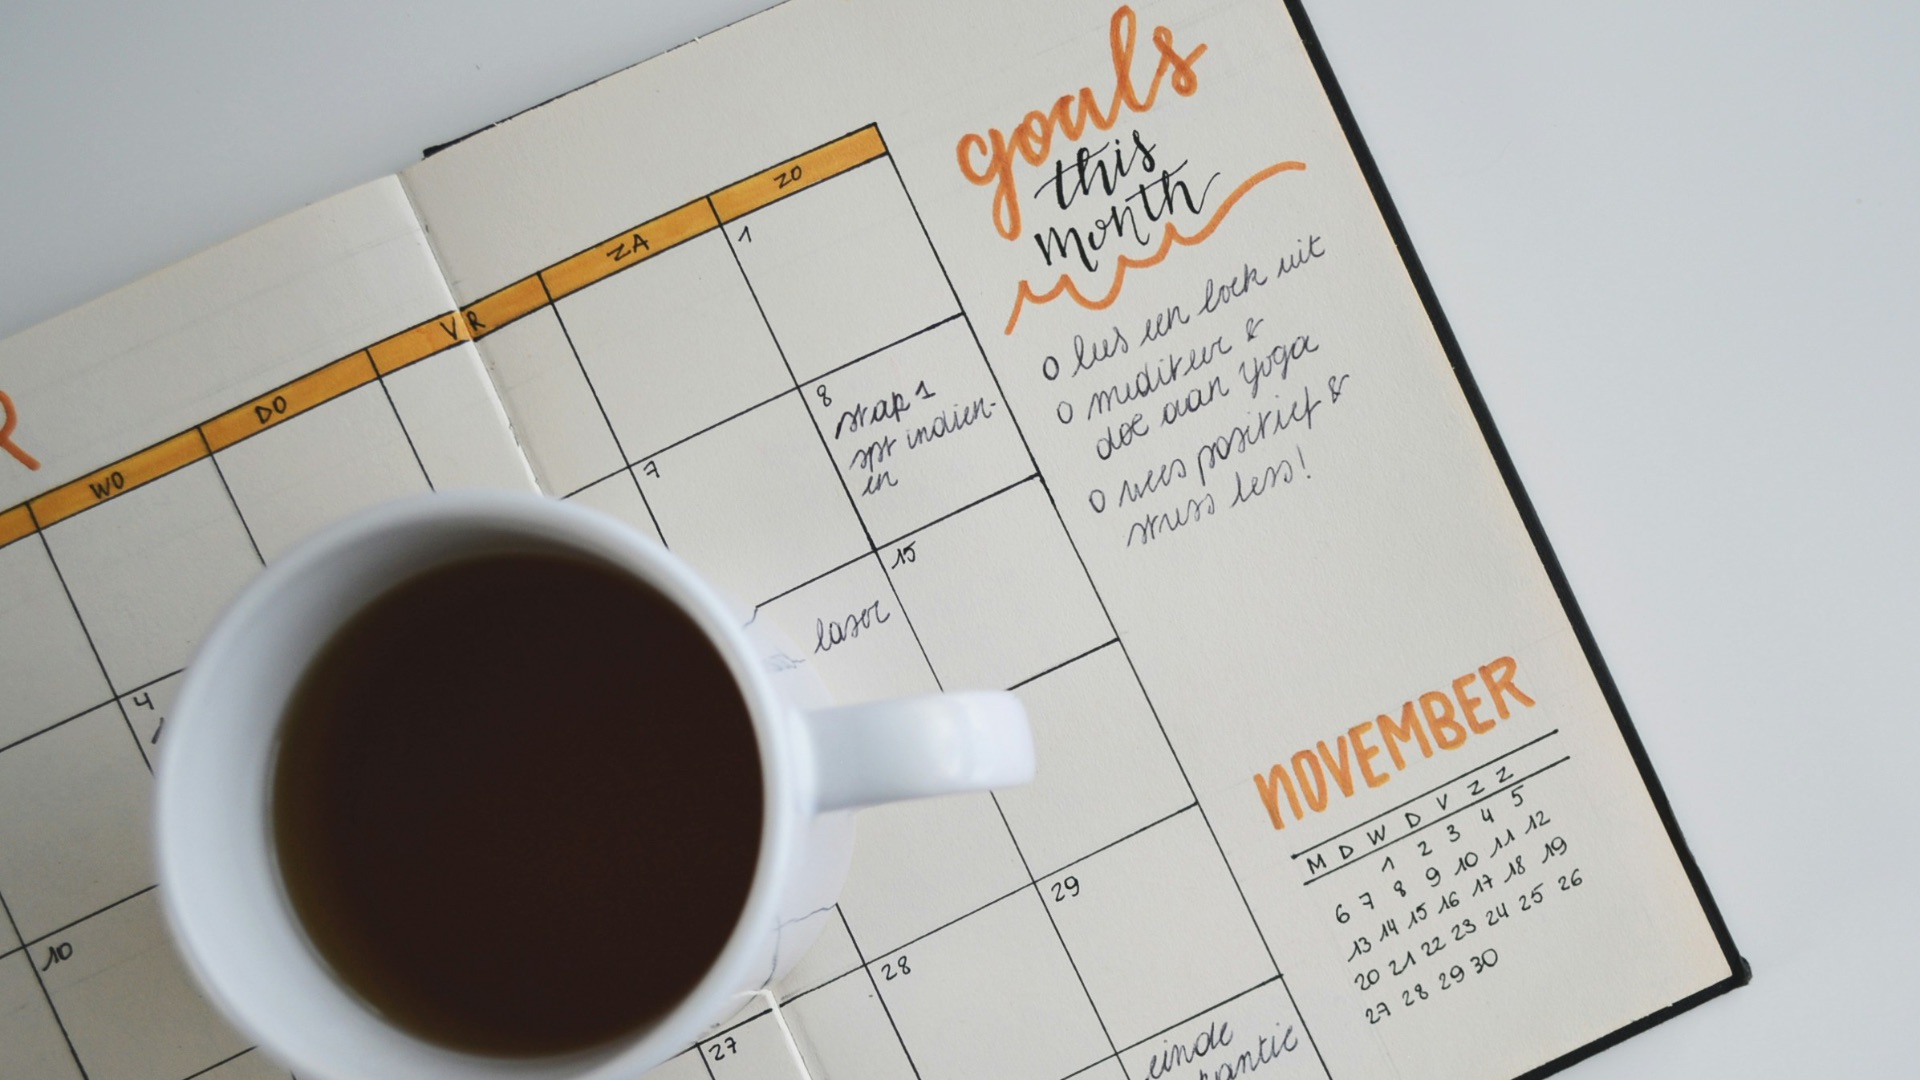 R
WO DO VR ZA ZO
1
7
8
stap 1
spr indien-
en
4
15
laser
10
29
28
27
einde
goals
this
month
o lees een boek uit
o mediteer &
doe aan yoga
o wees positief &
stress less!
NOVEMBER
M D W D V Z Z
1 2 3 4 5
6 7 8 9 10 11 12
13 14 15 16 17 18 19
20 21 22 23 24 25 26
27 28 29 30